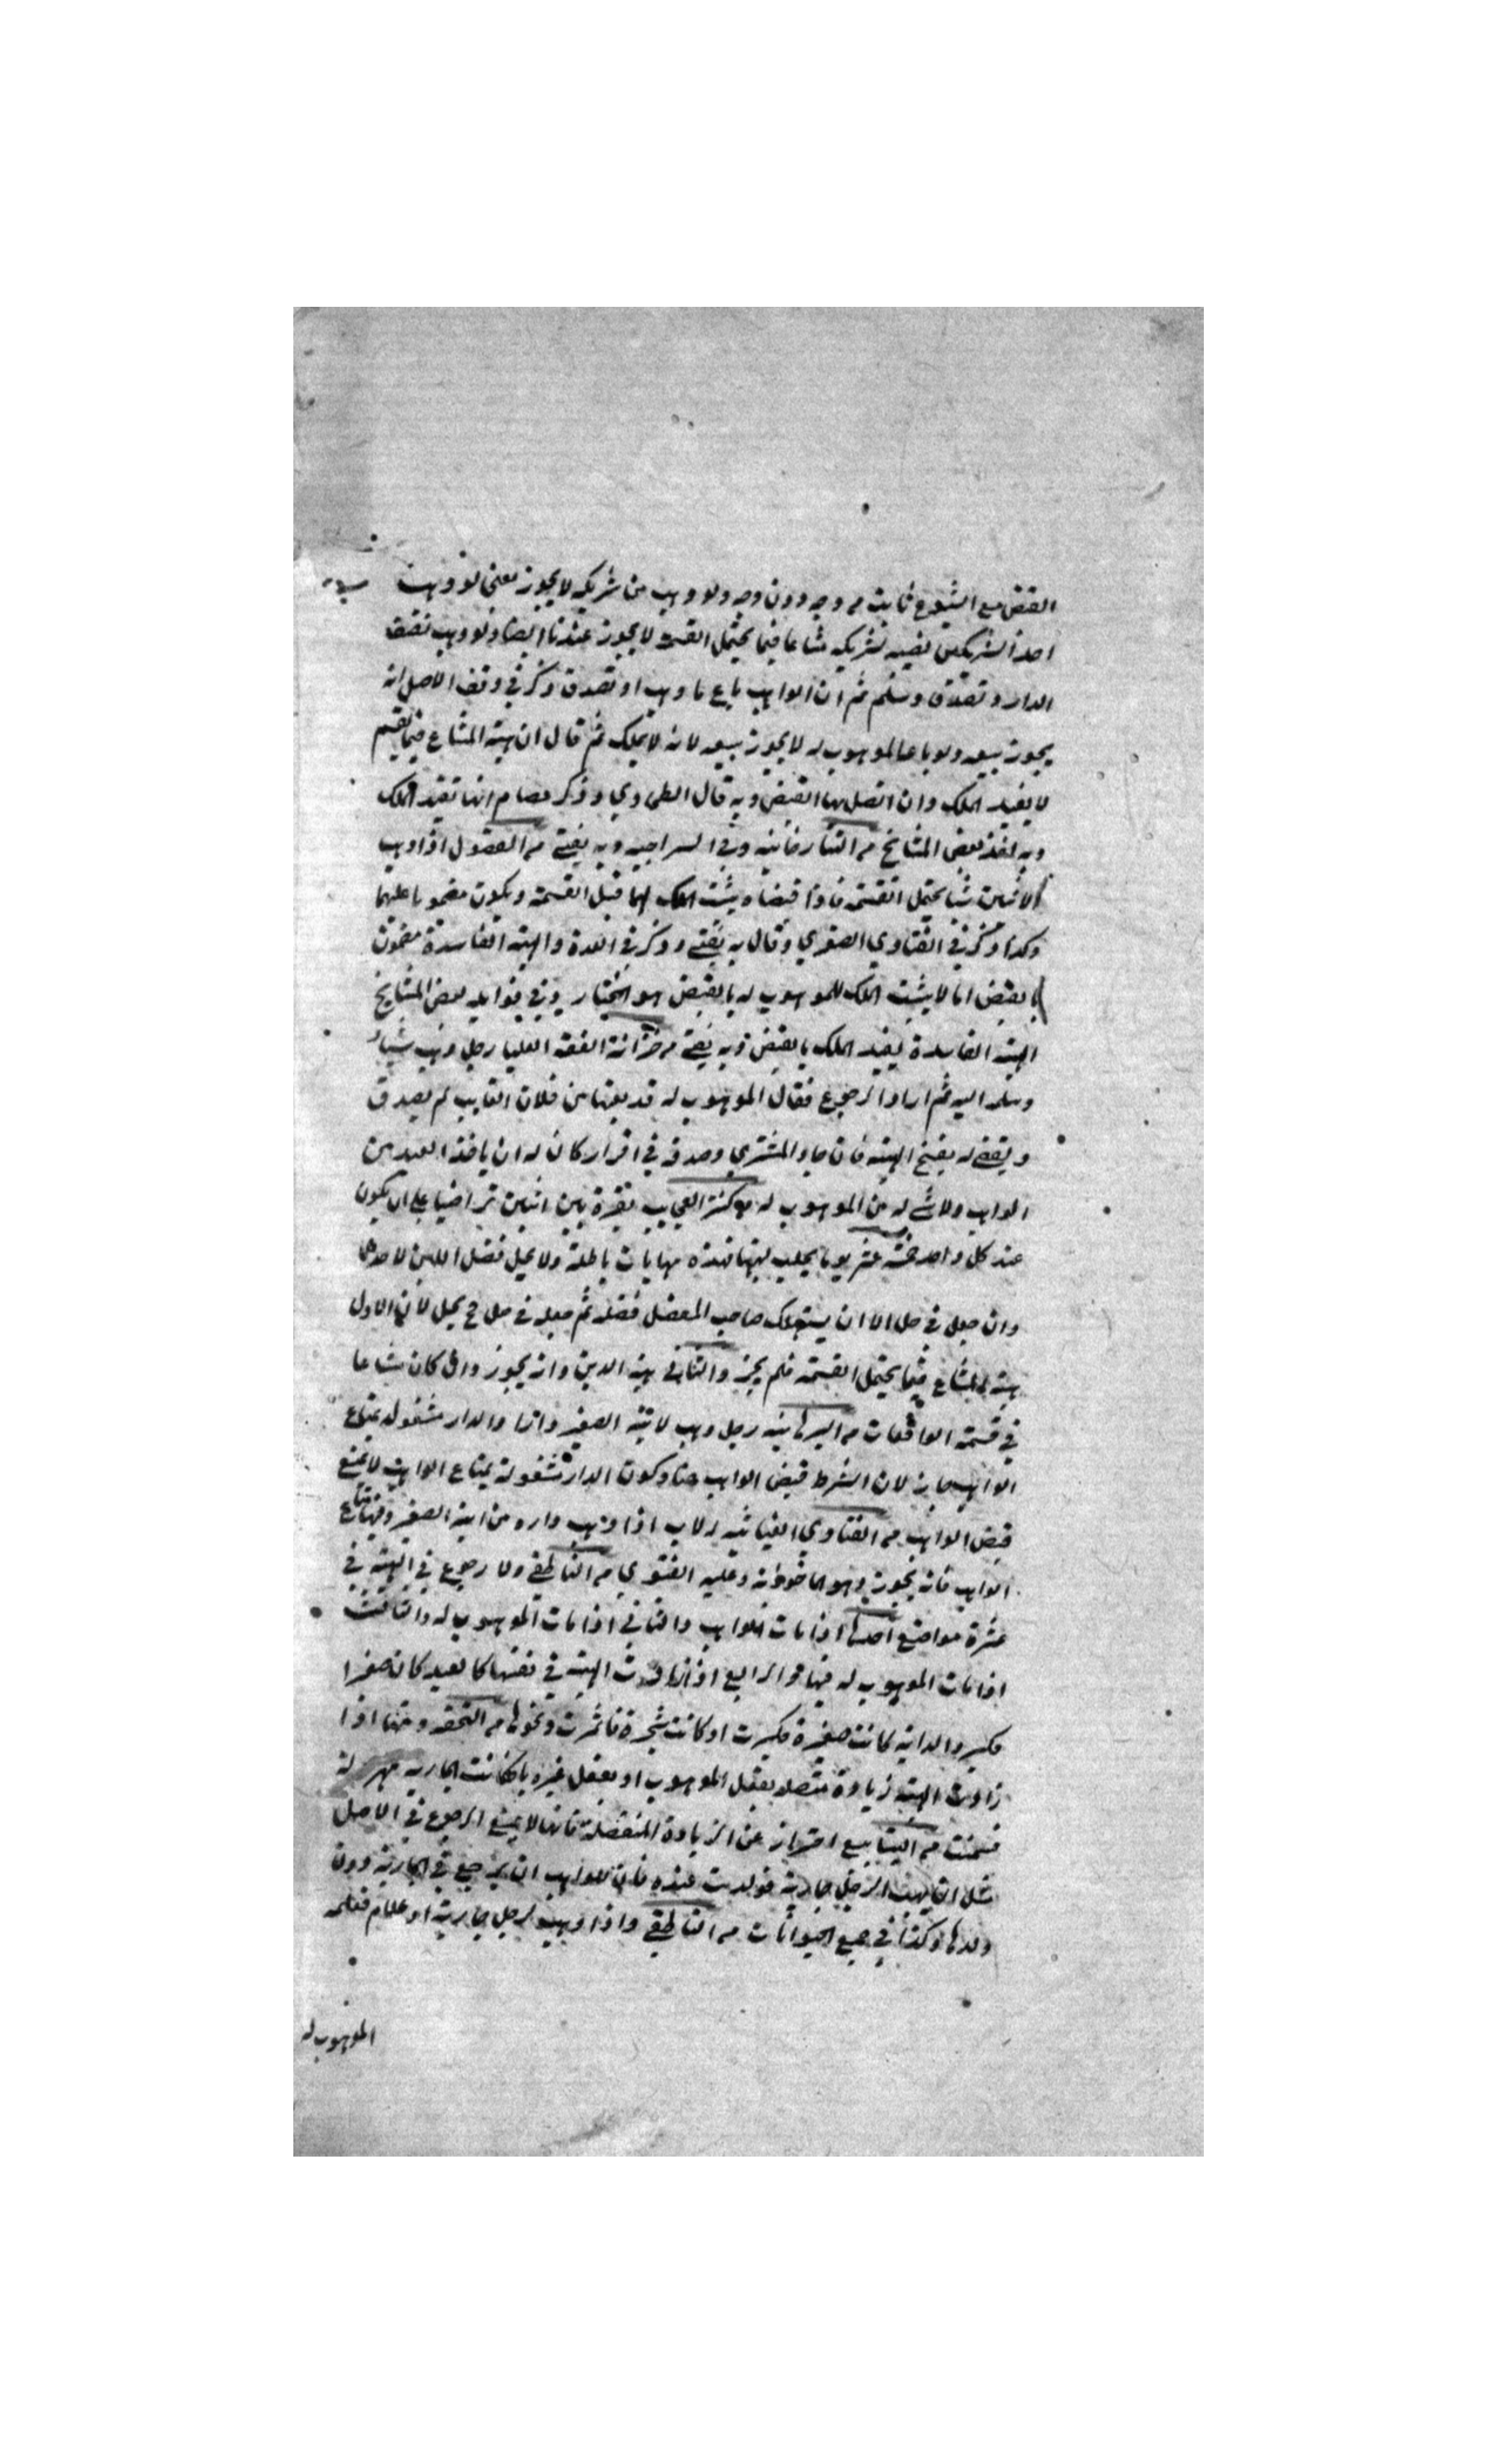 القبض مع الشيوع ثابت من وجه دون وجه ولو وهب من شريكه لا يجوز معنى لو وهب
احد الشريكين نصيبه لشريكه مشاعا فيما يحتمل القسمة لا يجوز عندنا ايضا ولو وهب نصف
الدار و تصدق وسلم ثم ان الواهب باع ما وهب او تصدق ذكر في وقف الاصل انه
يجوز بيعه ولو باعه الموهوب له لا يجوز بيعه لانه لا يملك ثم قال ان هبة المشاع فيما يقسم
لا يفيد الملك وان اتصل بها القبض وبه قال الطحاوي وذكر عصام انها تفيد الملك
وبه اخذ بعض المشايخ من التتارخانيه وفي السراجيه وبه يفتى من الفصول اذا وهب
لاثنين شيا يحتمل القسمة فاذا قبضاه يثبت الملك لهما قبل القسمة ويكون مضمونا عليهما
وكذا ذكر في الفتاوي الصغري وقال به يفتى وذكر في العدة والهبة الفاسدة مضمونة
بالقبض اما لا يثبت الملك للموهوب له بالقبض هو المختار وفي فوايد بعض المشايخ
الهبة الفاسدة يفيد الملك بالقبض وبه يفتى من خزانة الفقه العليا رجل وهب شيأ
وسلم اليه ثم اراد الرجوع فقال الموهوب له قد بعتها من فلان الغايب لم يصدق
ويقضى له بفسخ الهبة فان جاء المشتري وصدقه في اقراره كان له ان ياخذ العبد من
الواهب ولا شئ له من الموهوب له من كنز العجايب بقرة بين اثنين تراضيا على ان يكون
عند كل واحد خمسة عشر يوما يحلب لبنها فهذه مهايات باطلة ولا يحل فضل اللبن لاحدهما
وان جعل في حل الا ان يستهلك صاحب الفضل فضله ثم جعله في حل ح يحل لان الاول
هبة المشاع فيما يحتمل القسمة فلم يجز والثاني هبة الدين وانه يجوز وان كان مشاعا
في قسمة الواقعات من البرهانيه رجل وهب لابنه الصغير دارا والدار مشغولة بمتاع
الواهب جاز لان الشرط قبض الواهب هنا وكون الدار مشغولة بمتاع الواهب لا يمنع
قبض الواهب من الفتاوي الغياثيه الاب اذا وهب داره من ابنه الصغير وفيها متاع
الواهب فانه يجوز وهو الماخوذ به وعليه الفتوي من الناطفي ولا رجوع في الهبة في
عشرة مواضع احدها اذا مات الواهب والثاني اذا مات الموهوب له والثالث
اذا مات الموهوب له فيها والرابع اذا زادت الهبة في نفسها كالعبد كان صغيرا
فكبر والدابة كانت صغيرة فكبرت او كانت شجرة فاثمرت ونحوها من التحفه ومنها اذا
زادت الهبة زيادة متصلة بفعل الموهوب او بفعل غيره بان كانت الجارية مهزولة
فسمنت من الينابيع احتراز عن الزيادة المنفصلة فانها لا يمنع الرجوع في الاصل
مثل ان يهب الرجل جارية فولدت عنده فان للواهب ان يرجع في الجارية دون
ولدها وكذا في جميع الحيوانات من الناطفي واذا وهب لرجل جارية او غلام فعلمه
الموهوب له